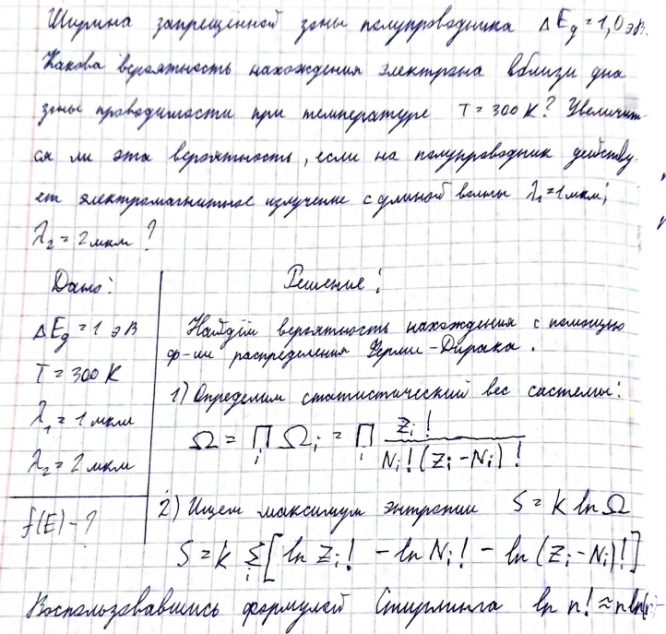 Ширина запрещённой зоны полупроводника ΔEg = 1,0 эВ.
Какова вероятность нахождения электрона вблизи дна
зоны проводимости при температуре T = 300 К? Увеличит
ся ли эта вероятность, если на полупроводник действу
ет электромагнитное излучение с длиной волны λ₁ = 1 мкм;
λ₂ = 2 мкм ?
Дано:
ΔEg = 1 эВ
T = 300 К
λ₁ = 1 мкм
λ₂ = 2 мкм
f(E) - ?
Решение:
Найдём вероятность нахождения с помощью
ф-ии распределения Ферми-Дирака.
1) Определим статистический вес системы:
Ω = ∏i Ωi = ∏i Zi! / Ni!(Zi-Ni)!
2) Ищем максимум энтропии S = k ln Ω
S = k Σi [ln Zi! - ln Ni! - ln (Zi-Ni)!]
Воспользовавшись формулой Стирлинга ln n! ≈ n ln